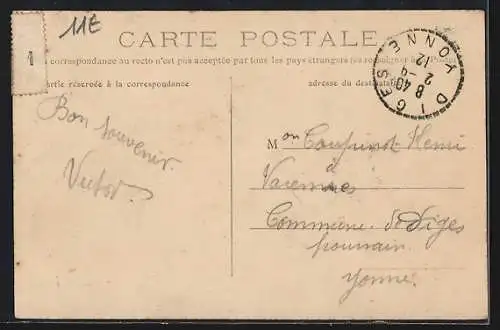 11E
1
CARTE POSTALE
La correspondance au recto n'est pas acceptée par tous les pays étrangers (se renseigner à la Poste)
Partie réservée à la correspondance
adresse du destinataire
DIGES
YONNE
8 40
2 -9
12
Bon souvenir.
Victor.
Mon Henri
à
Varennes
Commune de Diges
pourrain
Yonne.